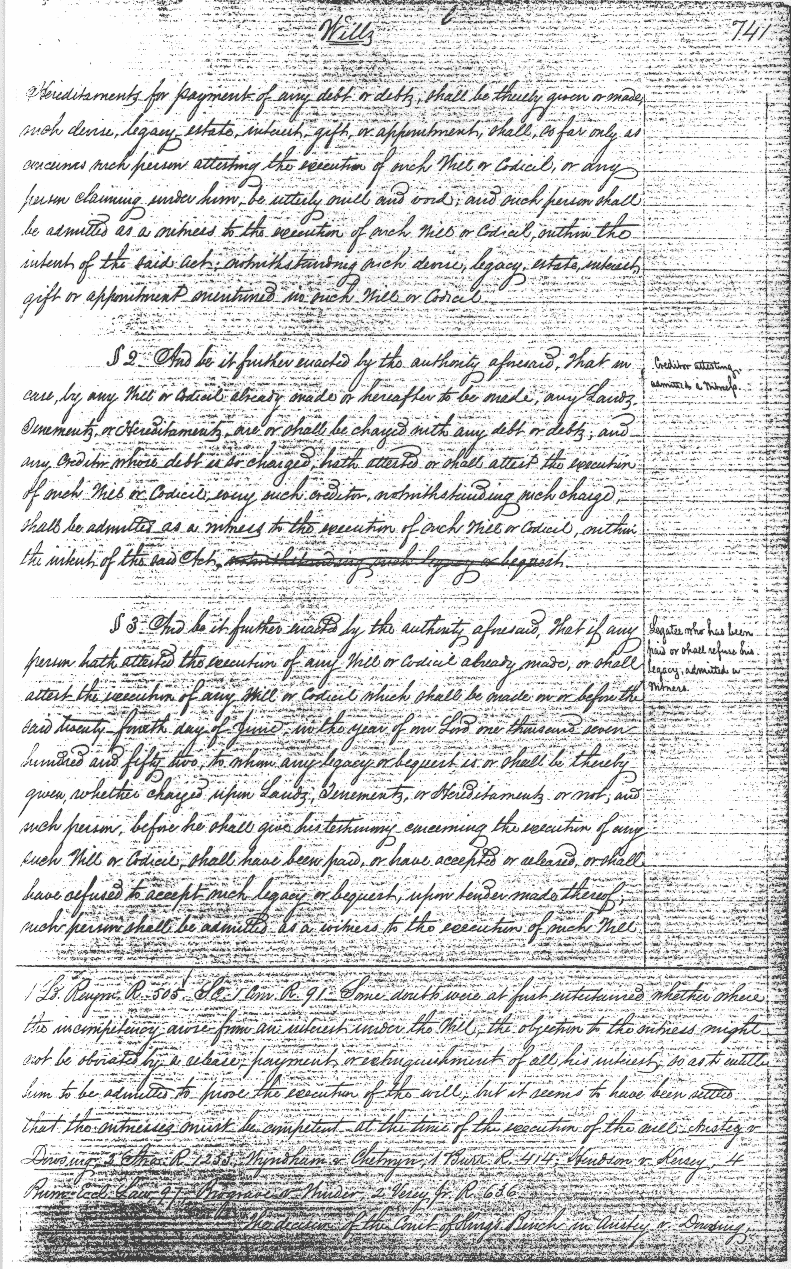 Wills
741
Hereditaments for payment of any debt or debts, shall be thereby given or made,
such devise, legacy, estate, interest, gift, or appointment, shall, so far only as
concerns such person attesting the execution of such Will or Codicil, or any
person claiming under him, be utterly null and void; and such person shall
be admitted as a witness to the execution of such Will or Codicil, within the
intent of the said Act; notwithstanding such devise, legacy, estate, interest,
gift or appointment mentioned in such Will or Codicil
§ 2. And be it further enacted by the authority aforesaid, That in
case, by any Will or Codicil already made or hereafter to be made, any Lands,
Tenements, or Hereditaments, are or shall be charged with any debt or debts; and
any Creditor whose debt is so charged, hath attested or shall attest the execution
of such Will or Codicil; every such creditor, notwithstanding such charge,
shall be admitted as a witness to the execution of such Will or Codicil, within
the intent of the said Act, notwithstanding such legacy or bequest.
Creditor attesting,
admitted a Witness.
§ 3. And be it further enacted by the authority aforesaid, That if any
person hath attested the execution of any Will or Codicil already made, or shall
attest the execution of any Will or Codicil which shall be made on or before the
said twenty-fourth day of June, in the year of our Lord one thousand seven
hundred and fifty two, to whom any legacy or bequest is or shall be thereby
given, whether charged upon Lands, Tenements, or Hereditaments or not; and
such person, before he shall give his testimony concerning the execution of any
such Will or Codicil, shall have been paid, or have accepted or released, or shall
have refused to accept such legacy or bequest, upon tender made thereof;
such person shall be admitted as a witness to the execution of such Will
Legatee who has been
paid or shall refuse his
legacy, admitted a
Witness.
1 Ld. Raym. R. 505. 1 R. 91. Some doubts were at first entertained whether where
the incompetency arose from an interest under the Will, the objection to the witness might
not be obviated by a release, payment, or extinguishment of all his interest, so as to entitle
him to be admitted to prove the execution of the will; but it seems to have been settled
that the witnesses must be competent at the time of the execution of the will. Anstey v
Dowsing, 2 Stra. R. 1253; Wyndham v. Chetwyn, 1 Burr. R. 414; Hindson v. Kersey, 4
Burn. Eccl. Law. 97; v. Winder, 2 Vesey Jr. R. 636.
The decision of the Court of King's Bench in Anstey v. Dowsing,